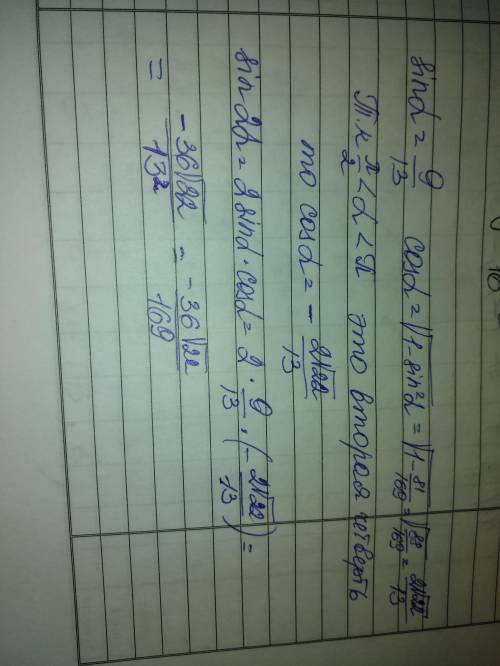 sinα = 9/13 cosα = √(1-sin²α) = √(1-81/169) = √(88/169) = 2√22/13
Т.к π/2 < α < π это вторая четверть
то cosα = - 2√22/13
sin2α = 2 sinα · cosα = 2 · 9/13 · (- 2√22/13) =
= -36√22/13² = -36√22/169